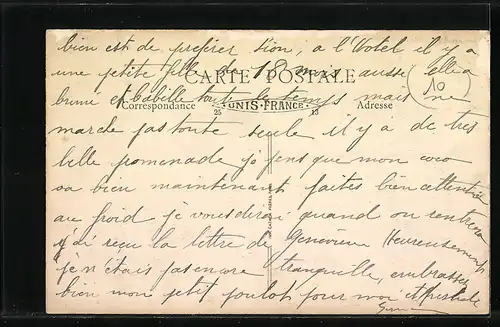 bien est de préférer Sion, a l'Hotel il y a
une petite fille de 18 mois aussi elle a
CARTE POSTALE
10
bruni et babille toute le temps mais ne
Correspondance UNIS-FRANCE Adresse
25 13
marche pas toute seule il y a de tres
belle promenade je pens que mon coco
va bien maintenant faites bien attention
au froid je vous dirai quand on rentrera
j'ai reçu la lettre de Geneviève Heureusement
je n'étais pas encore tranquille, embrasser
bien mon petit poulot pour moi et